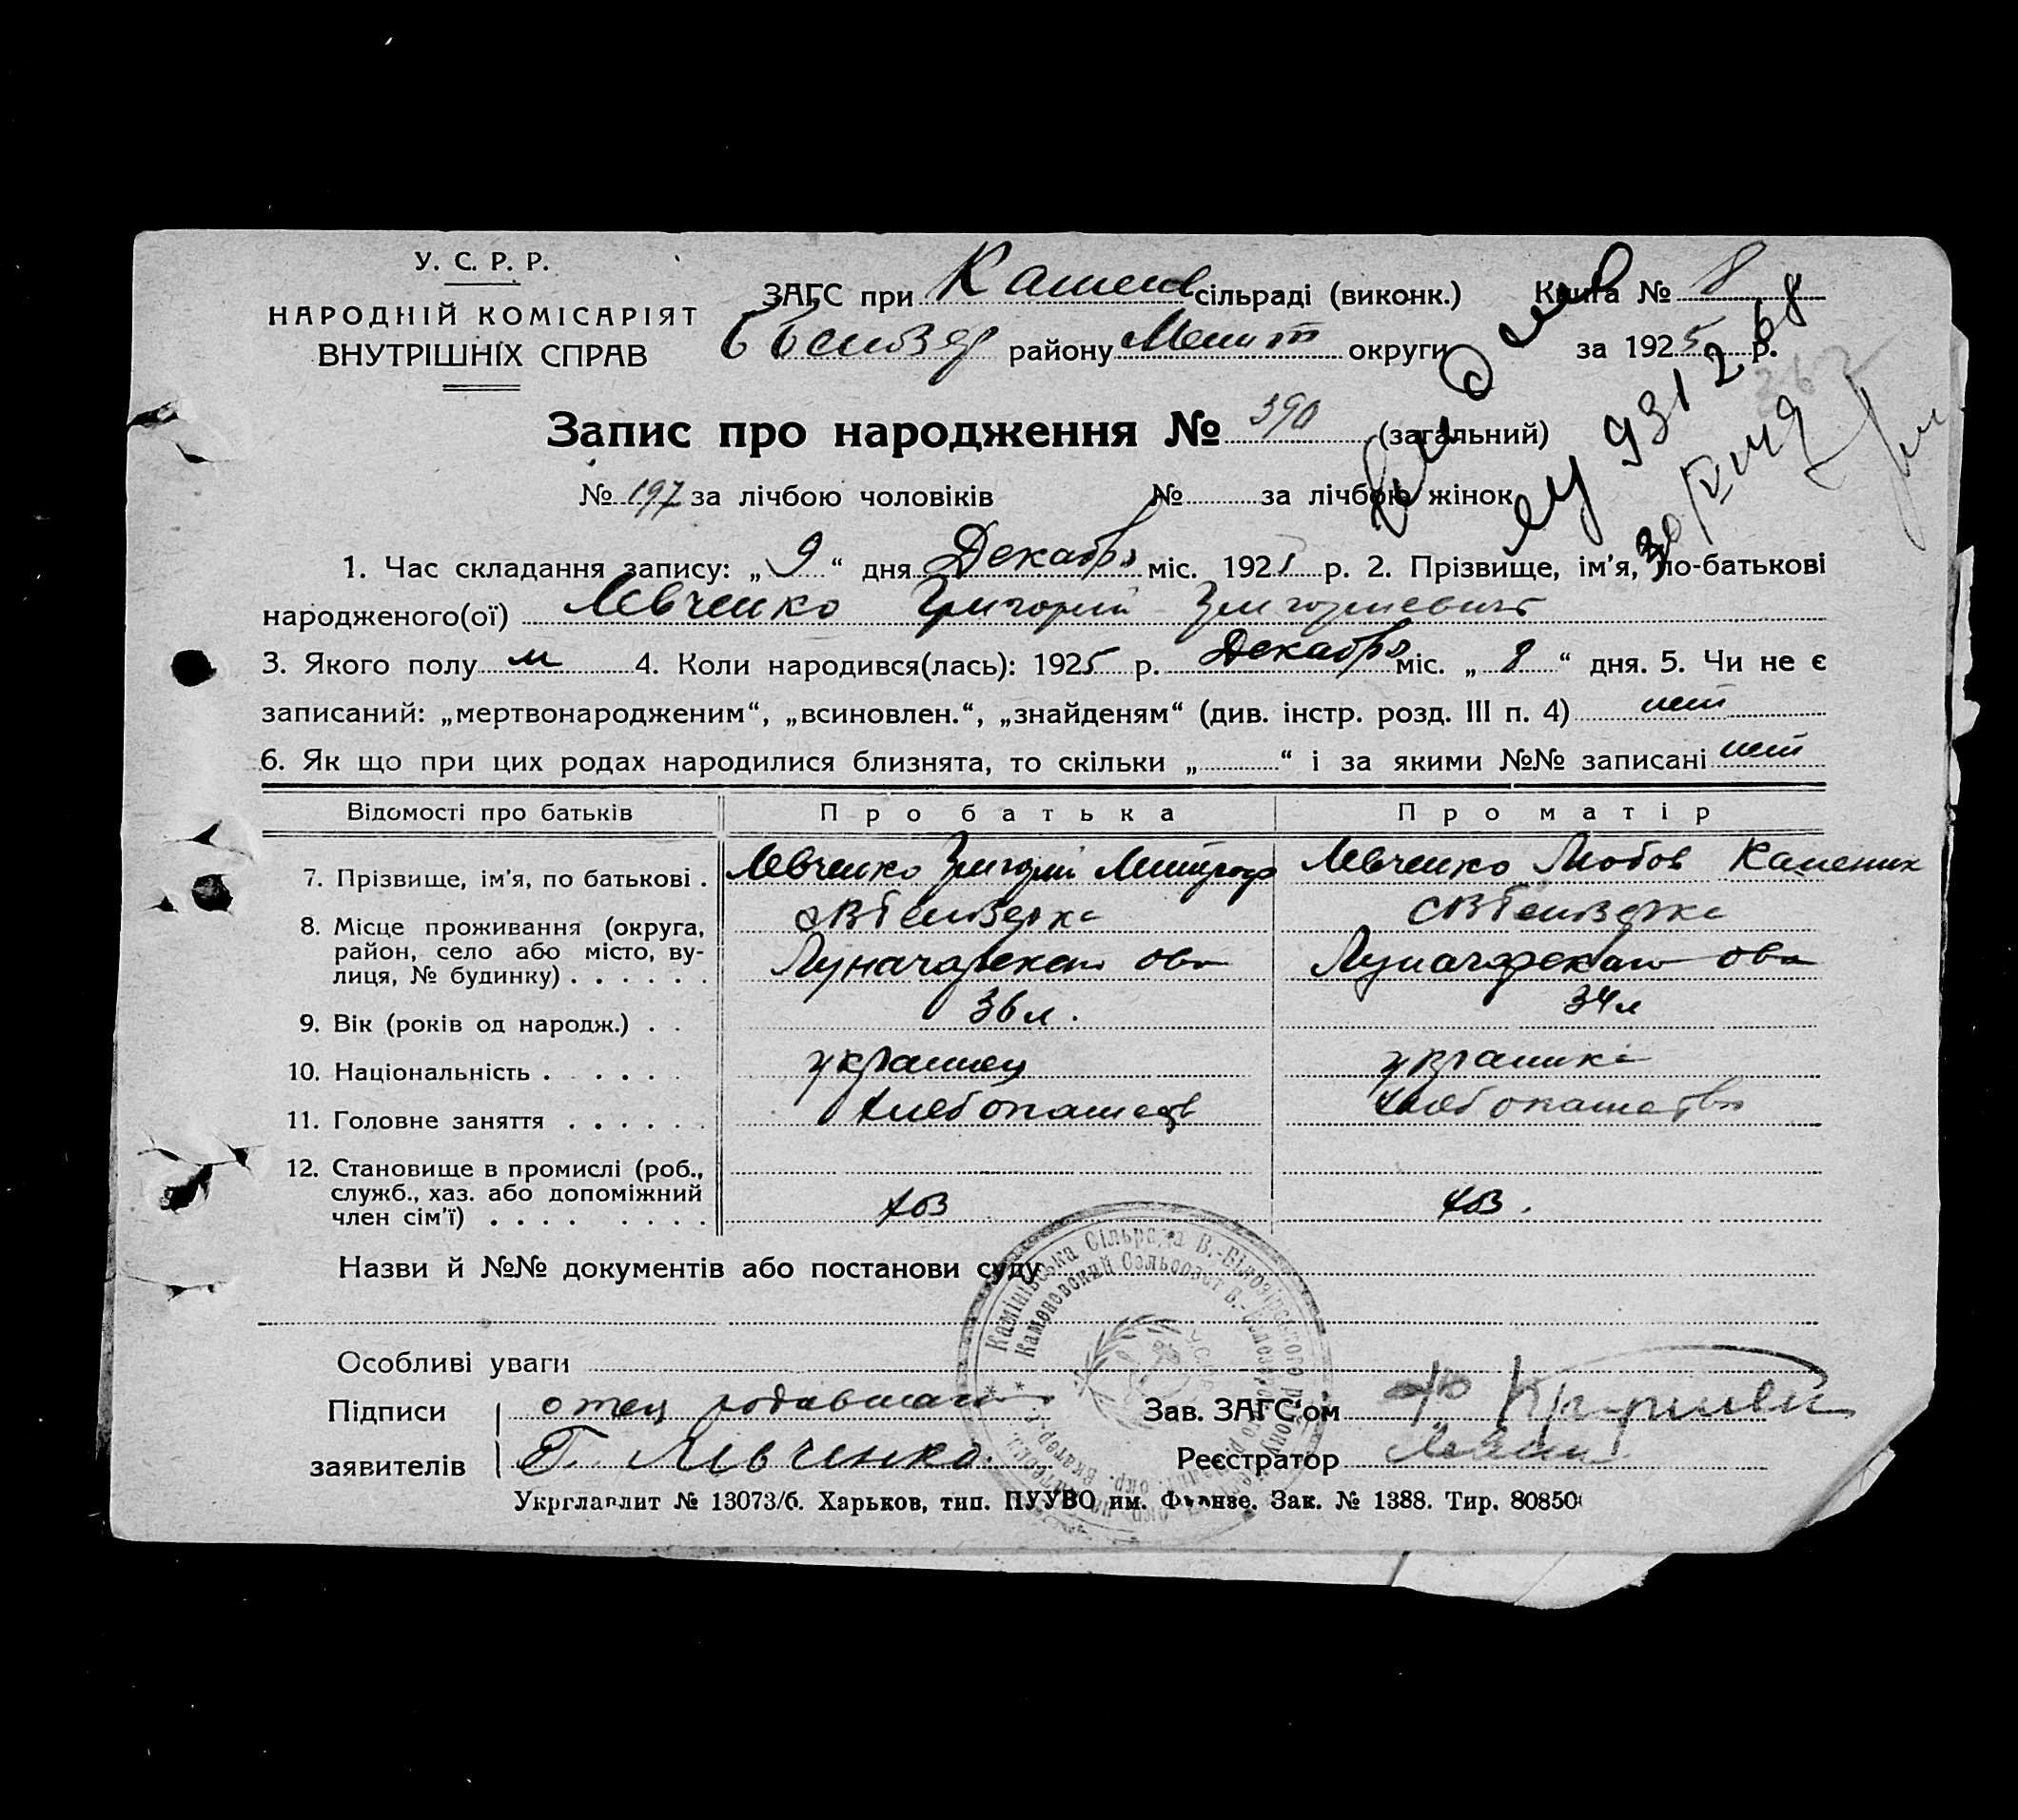 У. С. Р. Р.
НАРОДНІЙ КОМІСАРІЯТ
ВНУТРІШНІХ СПРАВ
ЗАГС при Камен сільраді (виконк.) Книга № 8
району Мелит округи за 1925 р.
Запис про народження № 390 (загальний)
№ 197 за лічбою чоловіків № за лічбою жінок
1. Час складання запису: „ 9 “ дня Декабря міс. 1925 р. 2. Прізвище, ім'я, по-батькові
народженого(ої) Левченко Григорий Григориевич
3. Якого полу м 4. Коли народився(лась): 1925 р. Декабря міс. „ 8 “ дня. 5. Чи не є
записаний: „мертвонародженим“, „всиновлен.“, „знайденям“ (див. інстр. розд. III п. 4) нет
6. Як що при цих родах народилися близнята, то скільки „ “ і за якими №№ записані нет
Відомості про батьків Про батька Про матір
7. Прізвище, ім'я, по батькові . Левченко Григорий Митроф Левченко Любов
8. Місце проживання (округа,
район, село або місто, ву-
лиця, № будинку) . . . . . .
9. Вік (років од народж.) . . 36 л. 34 л
10. Національність . . . . . . украинец украинка
11. Головне заняття . . . . . . хлебопашество хлебопашество
12. Становище в промислі (роб.,
служб., хаз. або допоміжний
член сім'ї) . . . . . . . . хоз хоз.
Назви й №№ документів або постанови суду
Особливі уваги
Підписи отец Зав. ЗАГС'ом
заявителів Г. Левченко Реєстратор
Укрглавлит № 13073/б. Харьков, тип. ПУУВО им. Фрунзе. Зак. № 1388. Тир. 80850
Камінівська Сільрада В.-Білозірського району
Каменовский Сельсовет В.-Белозерского р.